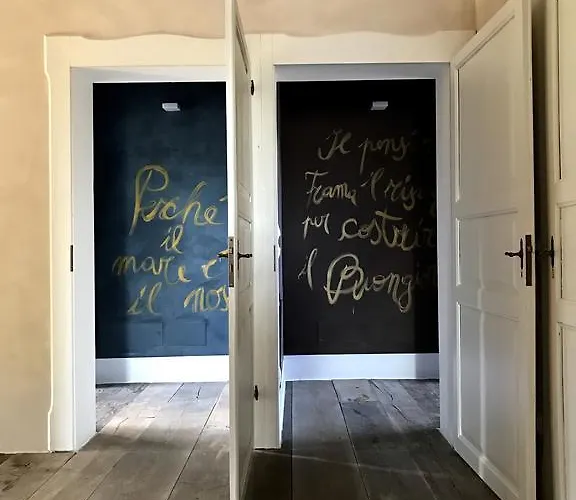 Perché
il
mare è
il nos
Il pensi
Trama il ris
per costruir
il Buongi